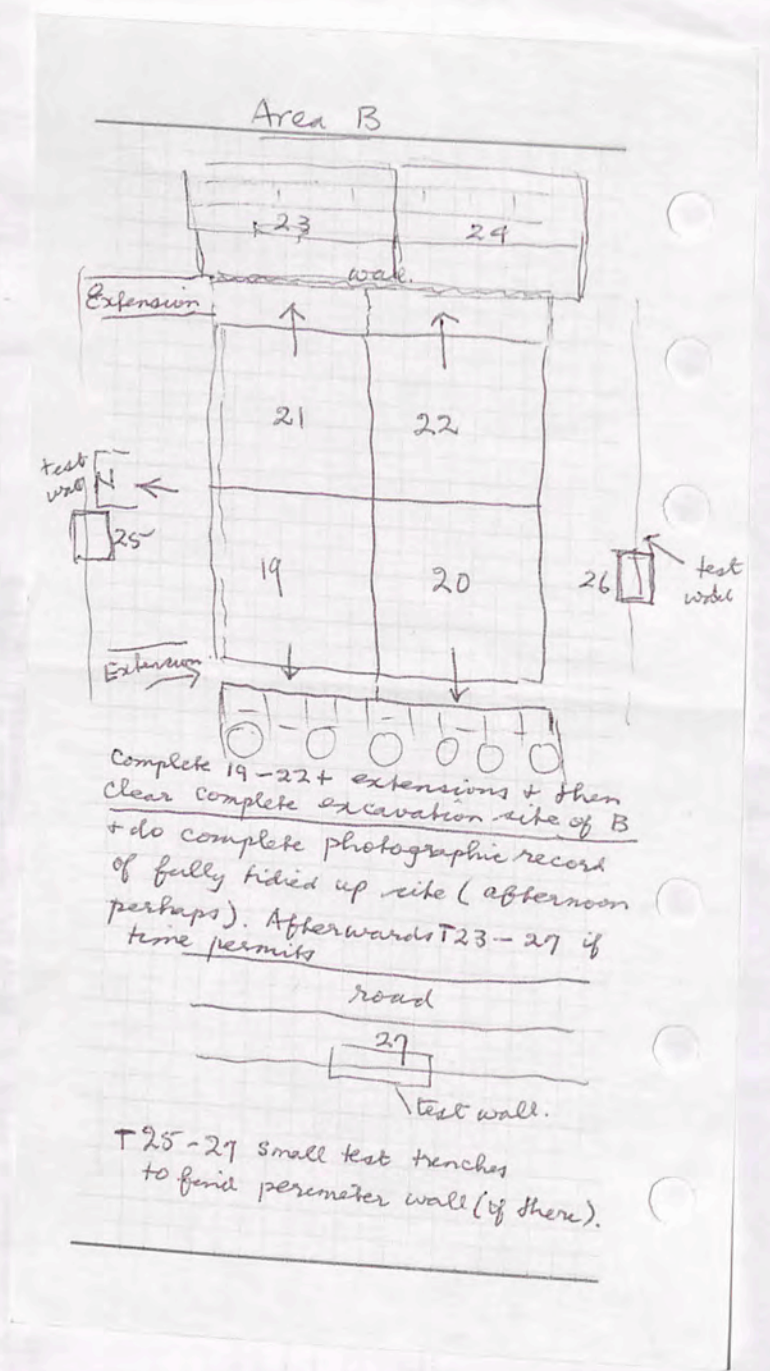 Area B
23
24
wall.
Extension
21
22
test
wall
25
19
20
26
test
wall
Extension
Complete 19-22 + extensions + then
clear complete excavation site of B
+ do complete photographic record
of fully tidied up site (afternoon
perhaps). Afterwards T23-27 if
time permits
road
27
test wall.
T25-27 small test trenches
to find perimeter wall (if there).